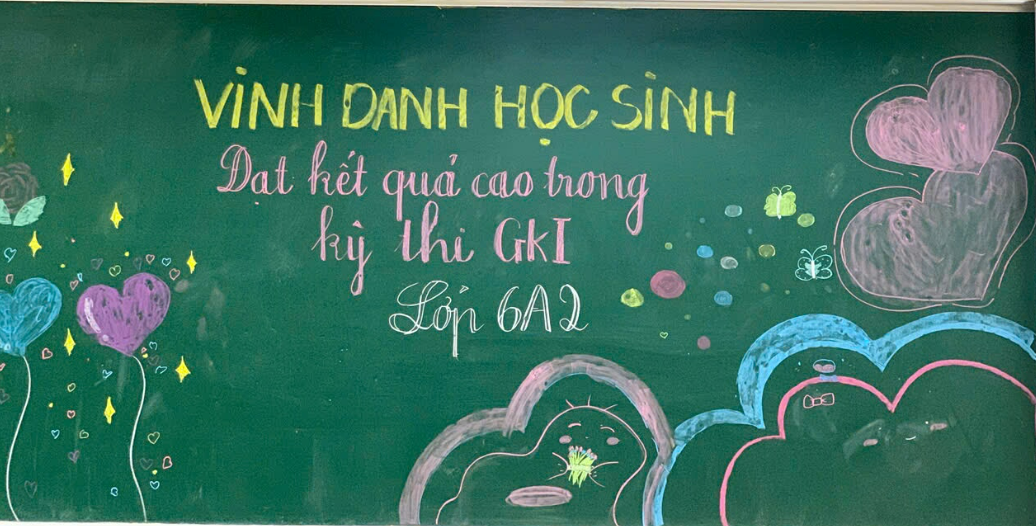 VINH DANH HỌC SINH
Đạt kết quả cao trong
kỳ thi GKI
Lớp 6A2